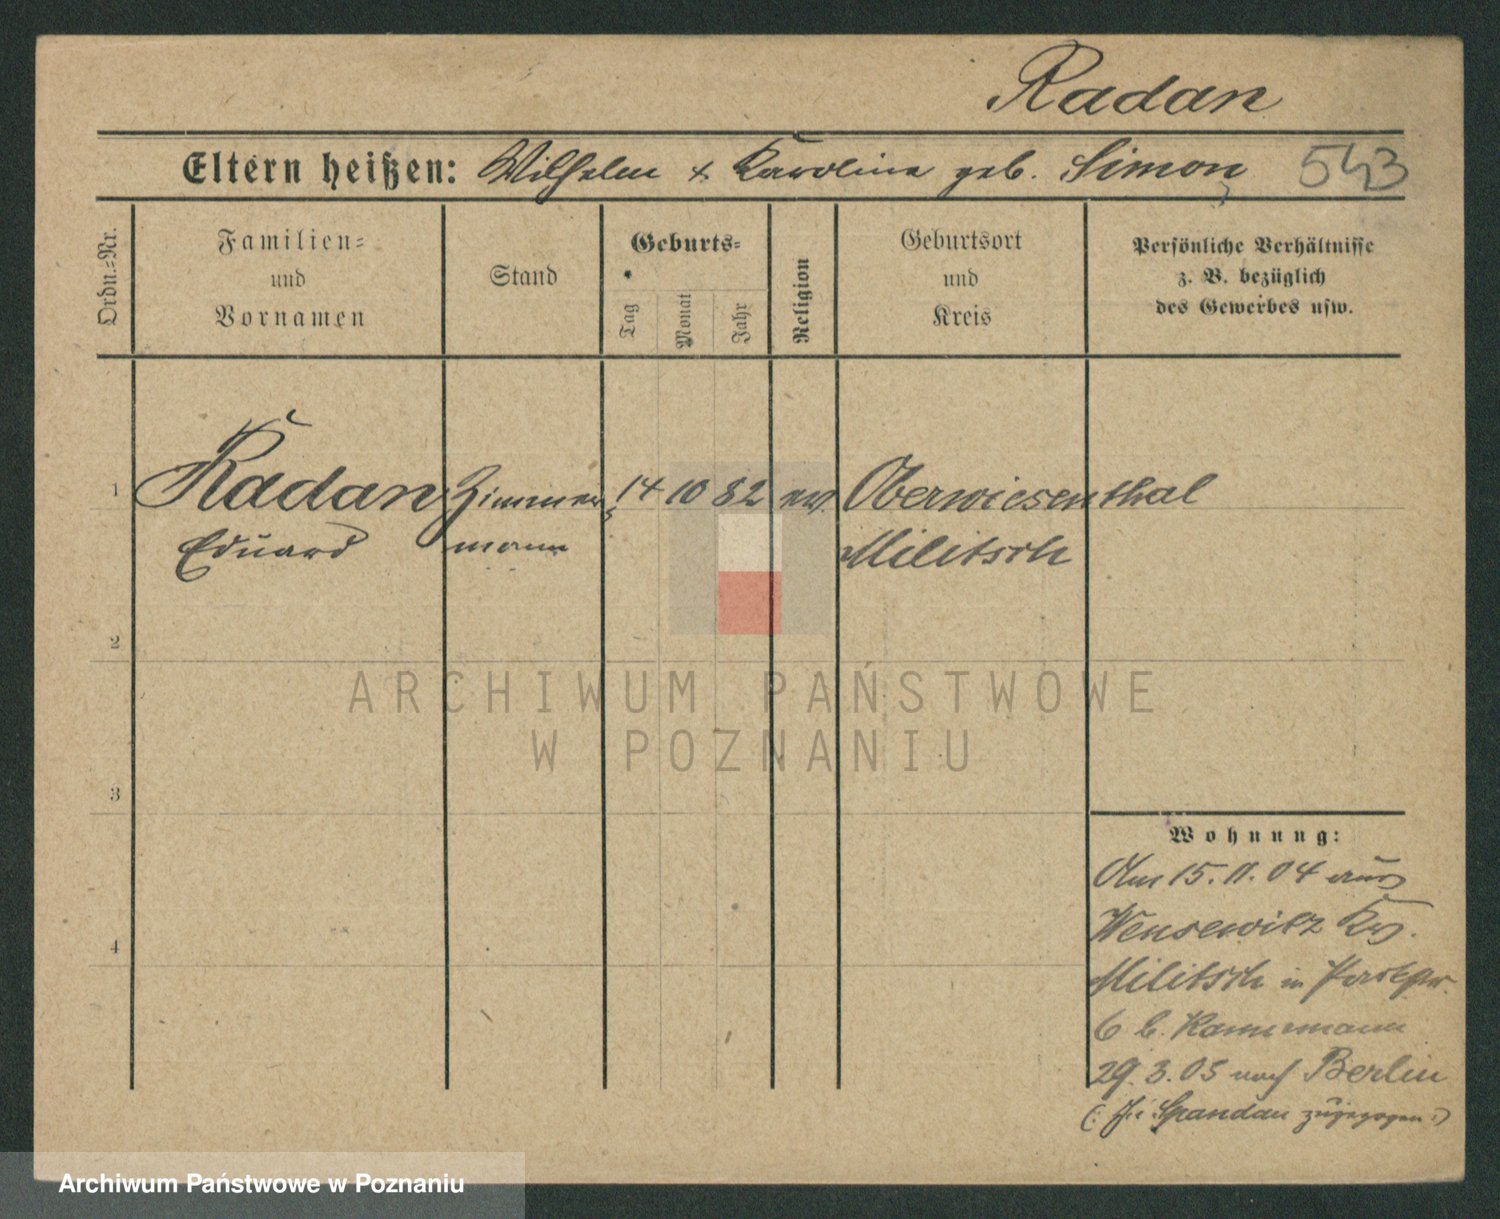 Radan
Eltern heißen: Wilhelm & Karoline geb. Simon 543
Ordn.=Nr.
Familien=
und
Vornamen
Stand
Geburts=
Tag
Monat
Jahr
Religion
Geburtsort
und
Kreis
Persönliche Verhältnisse
z. B. bezüglich
des Gewerbes usw.
1 Radan Zimmer 14 10 82 ev. Oberwiesenthal
Eduard mann Militsch
2
3
4
ARCHIWUM PAŃSTWOWE
W POZNANIU
Wohnung:
Am 15. 11. 04 aus
Wensewitz Krs.
Militsch in
6 b.
29. 3. 05 nach Berlin
(: Spandau zugezogen :)
Archiwum Państwowe w Poznaniu